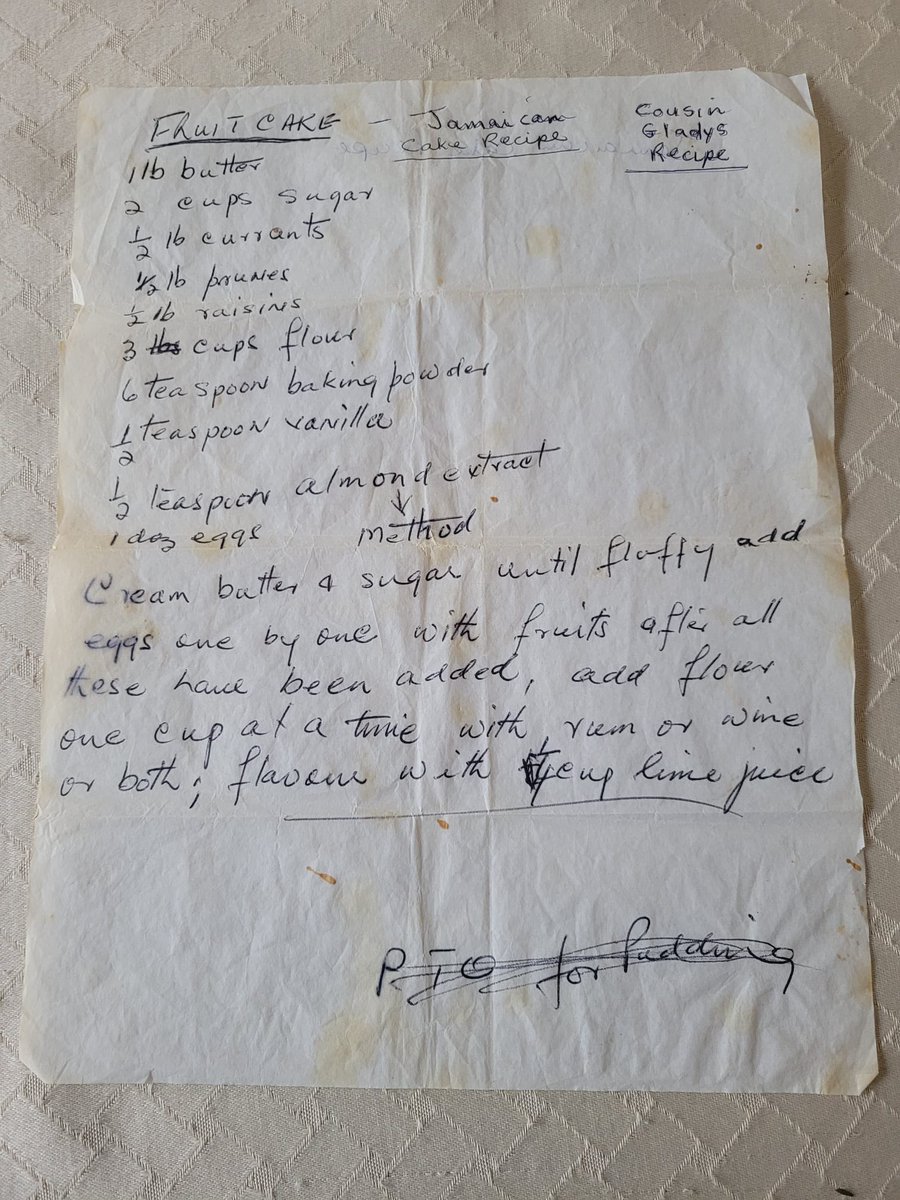 FRUIT CAKE - Jamaican
Cake Recipe
Cousin
Gladys
Recipe
1 lb butter
2 cups sugar
1/2 lb currants
1/2 lb prunes
1/2 lb raisins
3 lbs cups flour
6 teaspoon baking powder
1/2 teaspoon vanilla
1/2 teaspoon almond extract
1 doz eggs
Method
Cream butter & sugar until fluffy add
eggs one by one with fruits after all
these have been added, add flour
one cup at a time with rum or wine
or both; flavour with cup lime juice
P T O for Pudding